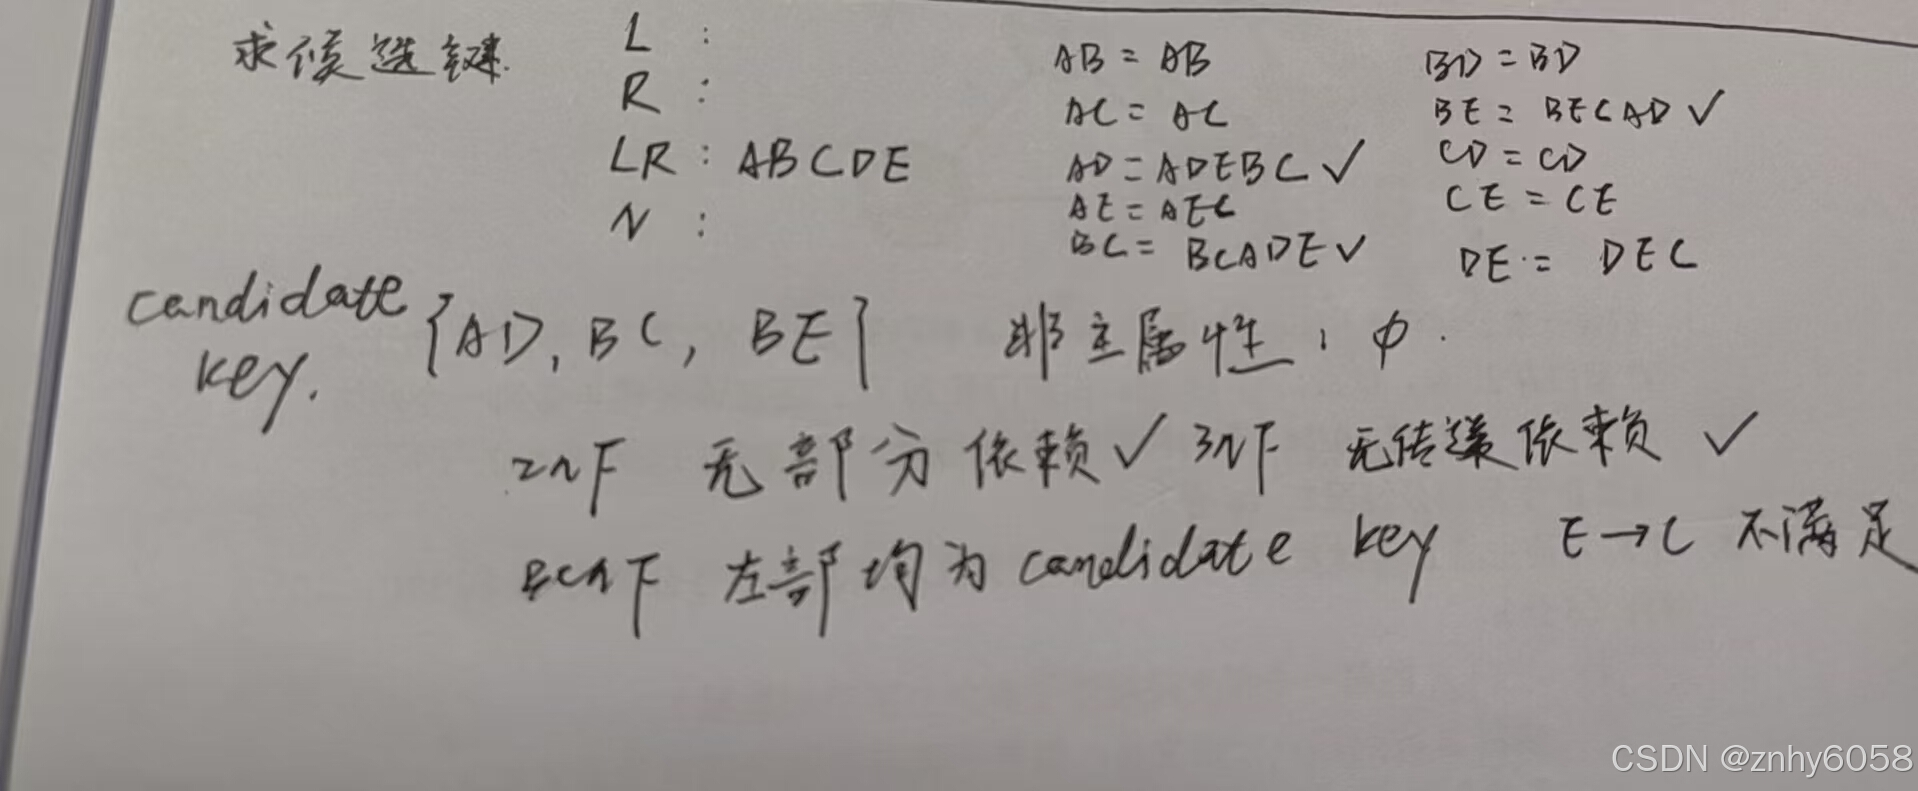 求候选键
L :
R :
LR : ABCDE
N :
AB = AB
AC = AC
AD = ADEBC ✓
AE = AEC
BC = BCADE ✓
BD = BD
BE = BECAD ✓
CD = CD
CE = CE
DE = DEC
candidate key. {AD, BC, BE} 非主属性: φ.
2NF 无部分依赖 ✓ 3NF 无传递依赖 ✓
BCNF 左部均为 candidate key E→C 不满足
CSDN @znhy6058